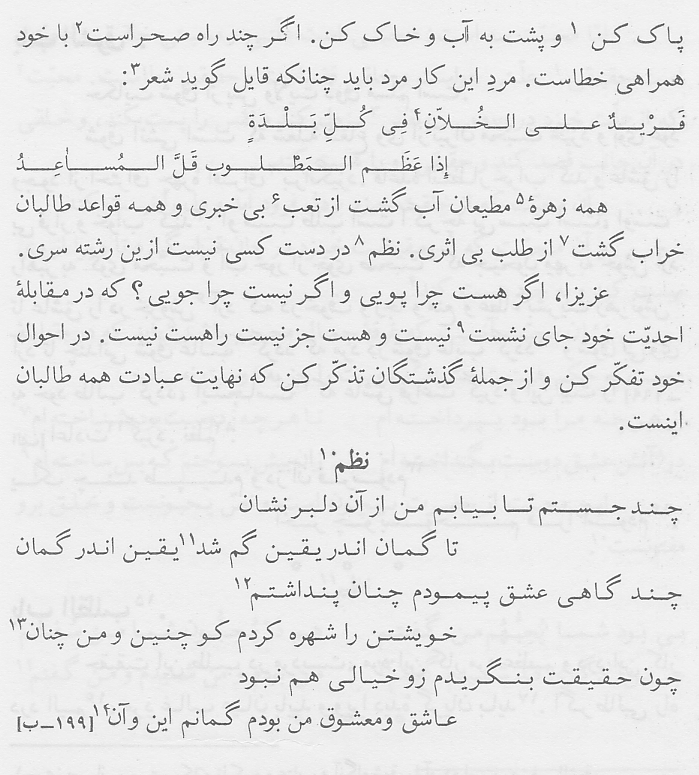 پاک کن ۱ و پشت به آب و خاک کن. اگر چند راه صحراست۲ با خود
همراهی خطاست. مردِ این کار مرد باید چنانکه قایل گوید شعر۳:
فَرِیْدٌ عَلی الخُلاّنِ۴ فِی کُلِّ بَلْدَةٍ
إذا عَظَم المَطْلوب قَلَّ المُساٰعِدُ
همه زهرهٔ۵ مطیعان آب گشت از تعب۶ بی خبری و همه قواعد طالبان
خراب گشت۷ از طلب بی اثری. نظم۸ در دست کسی نیست ازین رشته سری.
عزیزا، اگر هست چرا پویی و اگر نیست چرا جویی؟ که در مقابلهٔ
احدیّت خود جای نشست۹ نیست و هست جز نیست راهست نیست. در احوال
خود تفکّر کن و از جملهٔ گذشتگان تذکّر کن که نهایت عبادت همه طالبان
اینست.
نظم۱۰
چند جستم تا بیابم من از آن دلبر نشان
تا گمان اندر یقین گم شد۱۱یقین اندر گمان
چند گاهی عشق پیمودم چنان پنداشتم۱۲
خویشتن را شهره کردم کو چنین و من چنان۱۳
چون حقیقت بنگریدم زو خیالی هم نبود
عاشق ومعشوق من بودم گمانم این وآن۱۴[۱۹۹ـب]